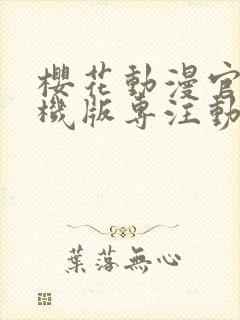 櫻花動漫官
機版專注動
葉落無心